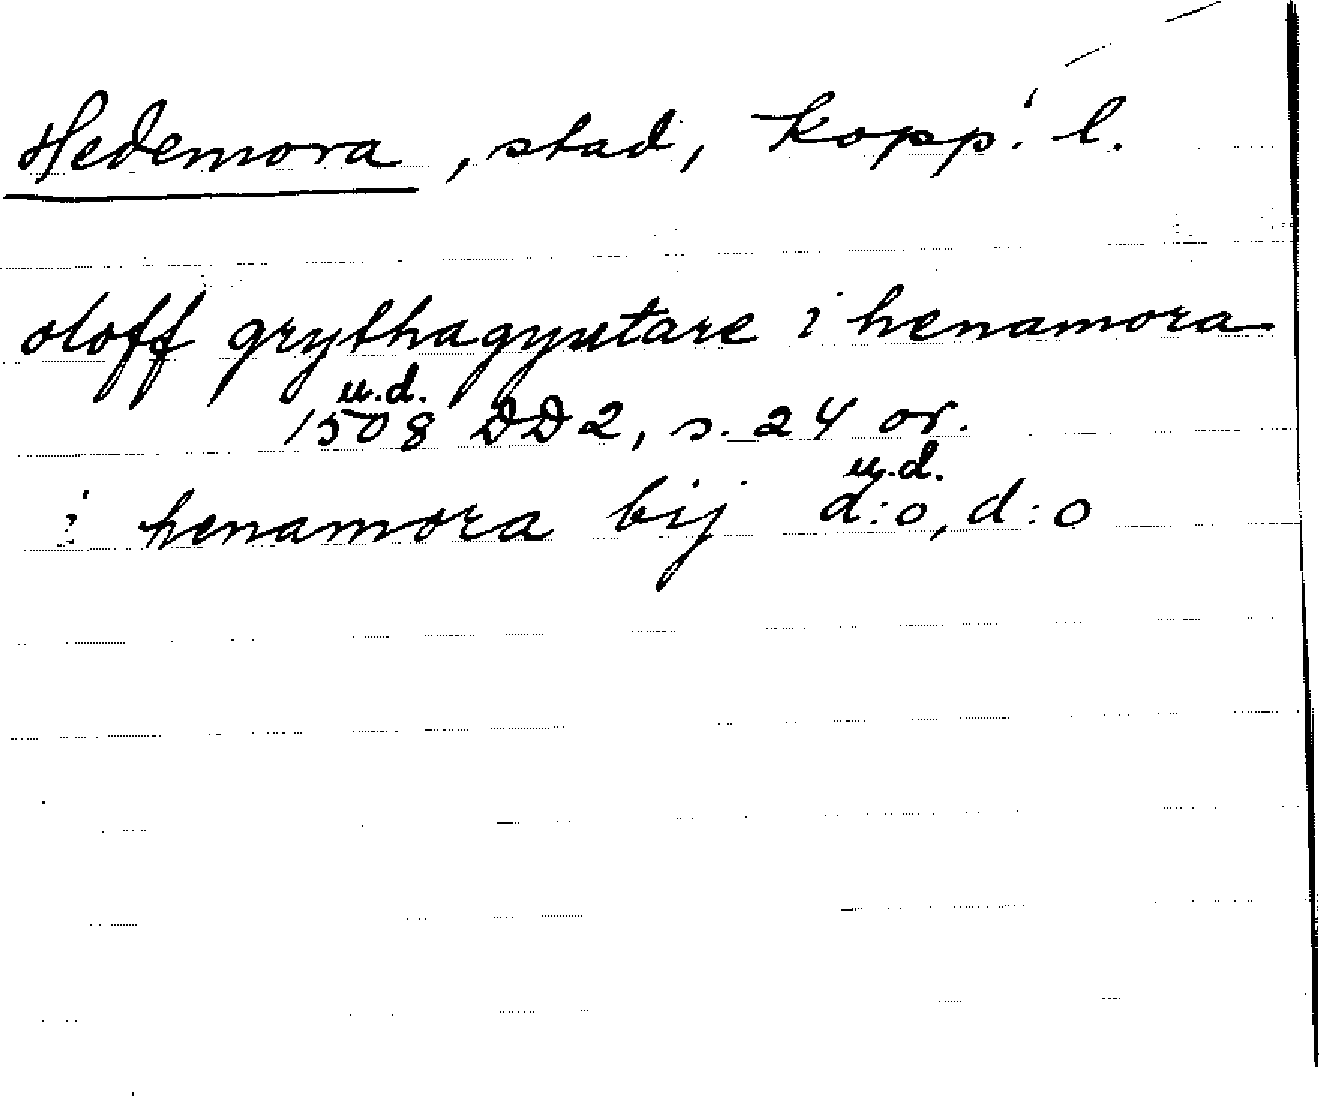 Hedemora, stad, Kopp. l.
oloff grythagyutare i henamora
u.d.
1508 DD2, s. 24 or.
u.d.
i henamora bij d:o, d:o